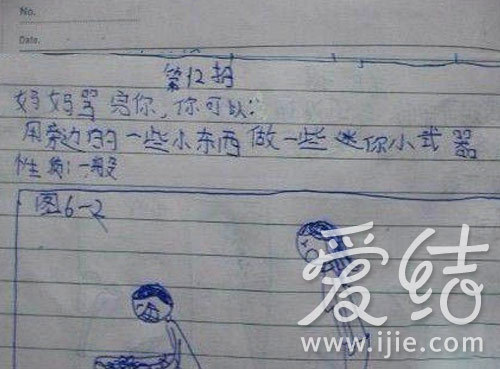 No.
Date.
第12招
妈妈骂完你,你可以:
用旁边的一些小东西做一些迷你小武器
性质:一般
图6-2
爱结
www.ijie.com